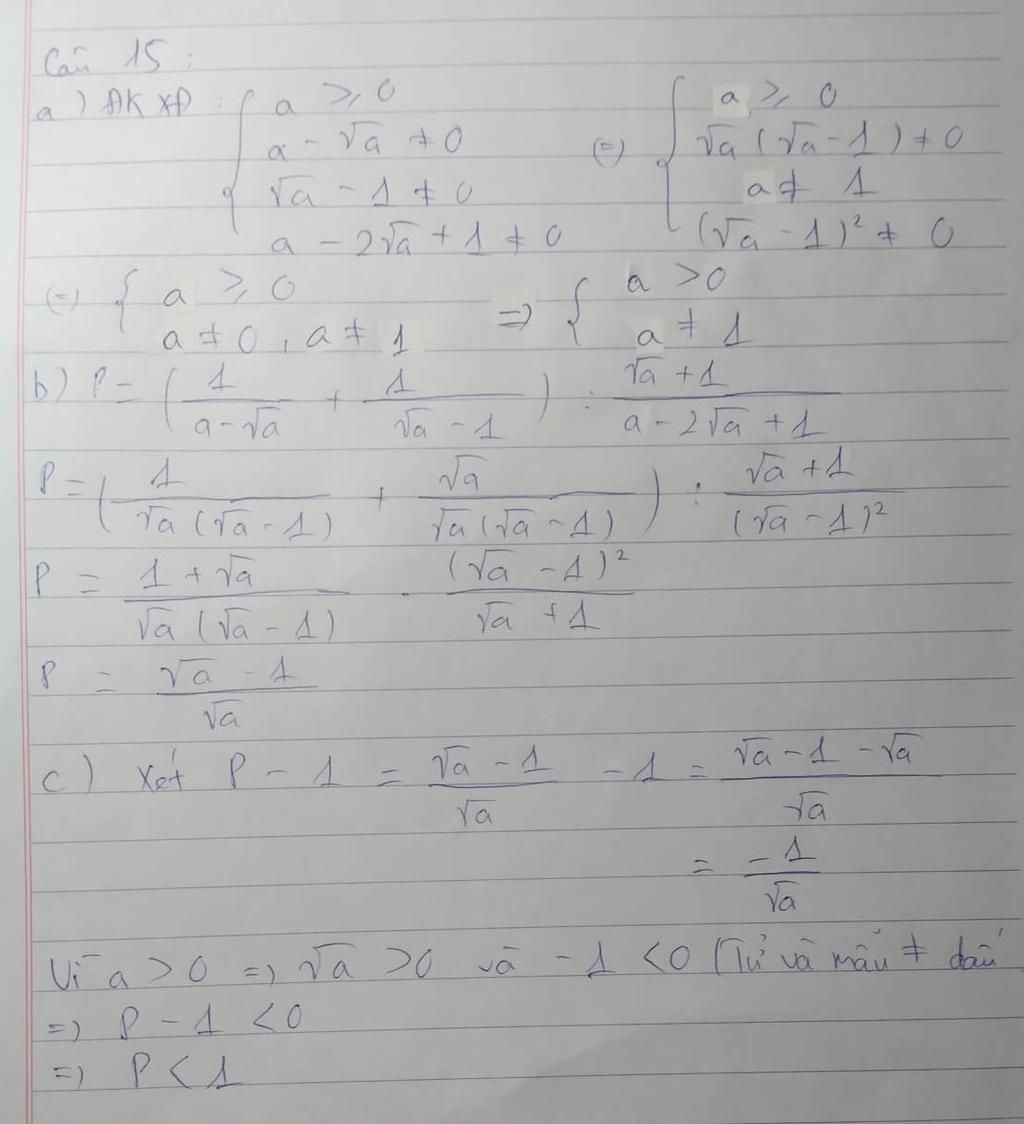 Câu 15 :
a) ĐKXĐ : { a ⩾ 0 ; a - √a ≠ 0 ; √a - 1 ≠ 0 ; a - 2√a + 1 ≠ 0 (=) { a ⩾ 0 ; √a (√a - 1) ≠ 0 ; a ≠ 1 ; (√a - 1)² ≠ 0
(=) { a ⩾ 0 ; a ≠ 0 , a ≠ 1 => { a > 0 ; a ≠ 1
b) P = ( 1/(a - √a) + 1/(√a - 1) ) : (√a + 1)/(a - 2√a + 1)
P = ( 1/(√a (√a - 1)) + √a/(√a (√a - 1)) ) : (√a + 1)/(√a - 1)²
P = (1 + √a)/(√a (√a - 1)) . (√a - 1)²/(√a + 1)
P = (√a - 1)/√a
c) Xét P - 1 = (√a - 1)/√a - 1 = (√a - 1 - √a)/√a
= -1/√a
Vì a > 0 => √a > 0 và - 1 < 0 (Tử và mẫu ≠ dấu
=> P - 1 < 0
=> P < 1